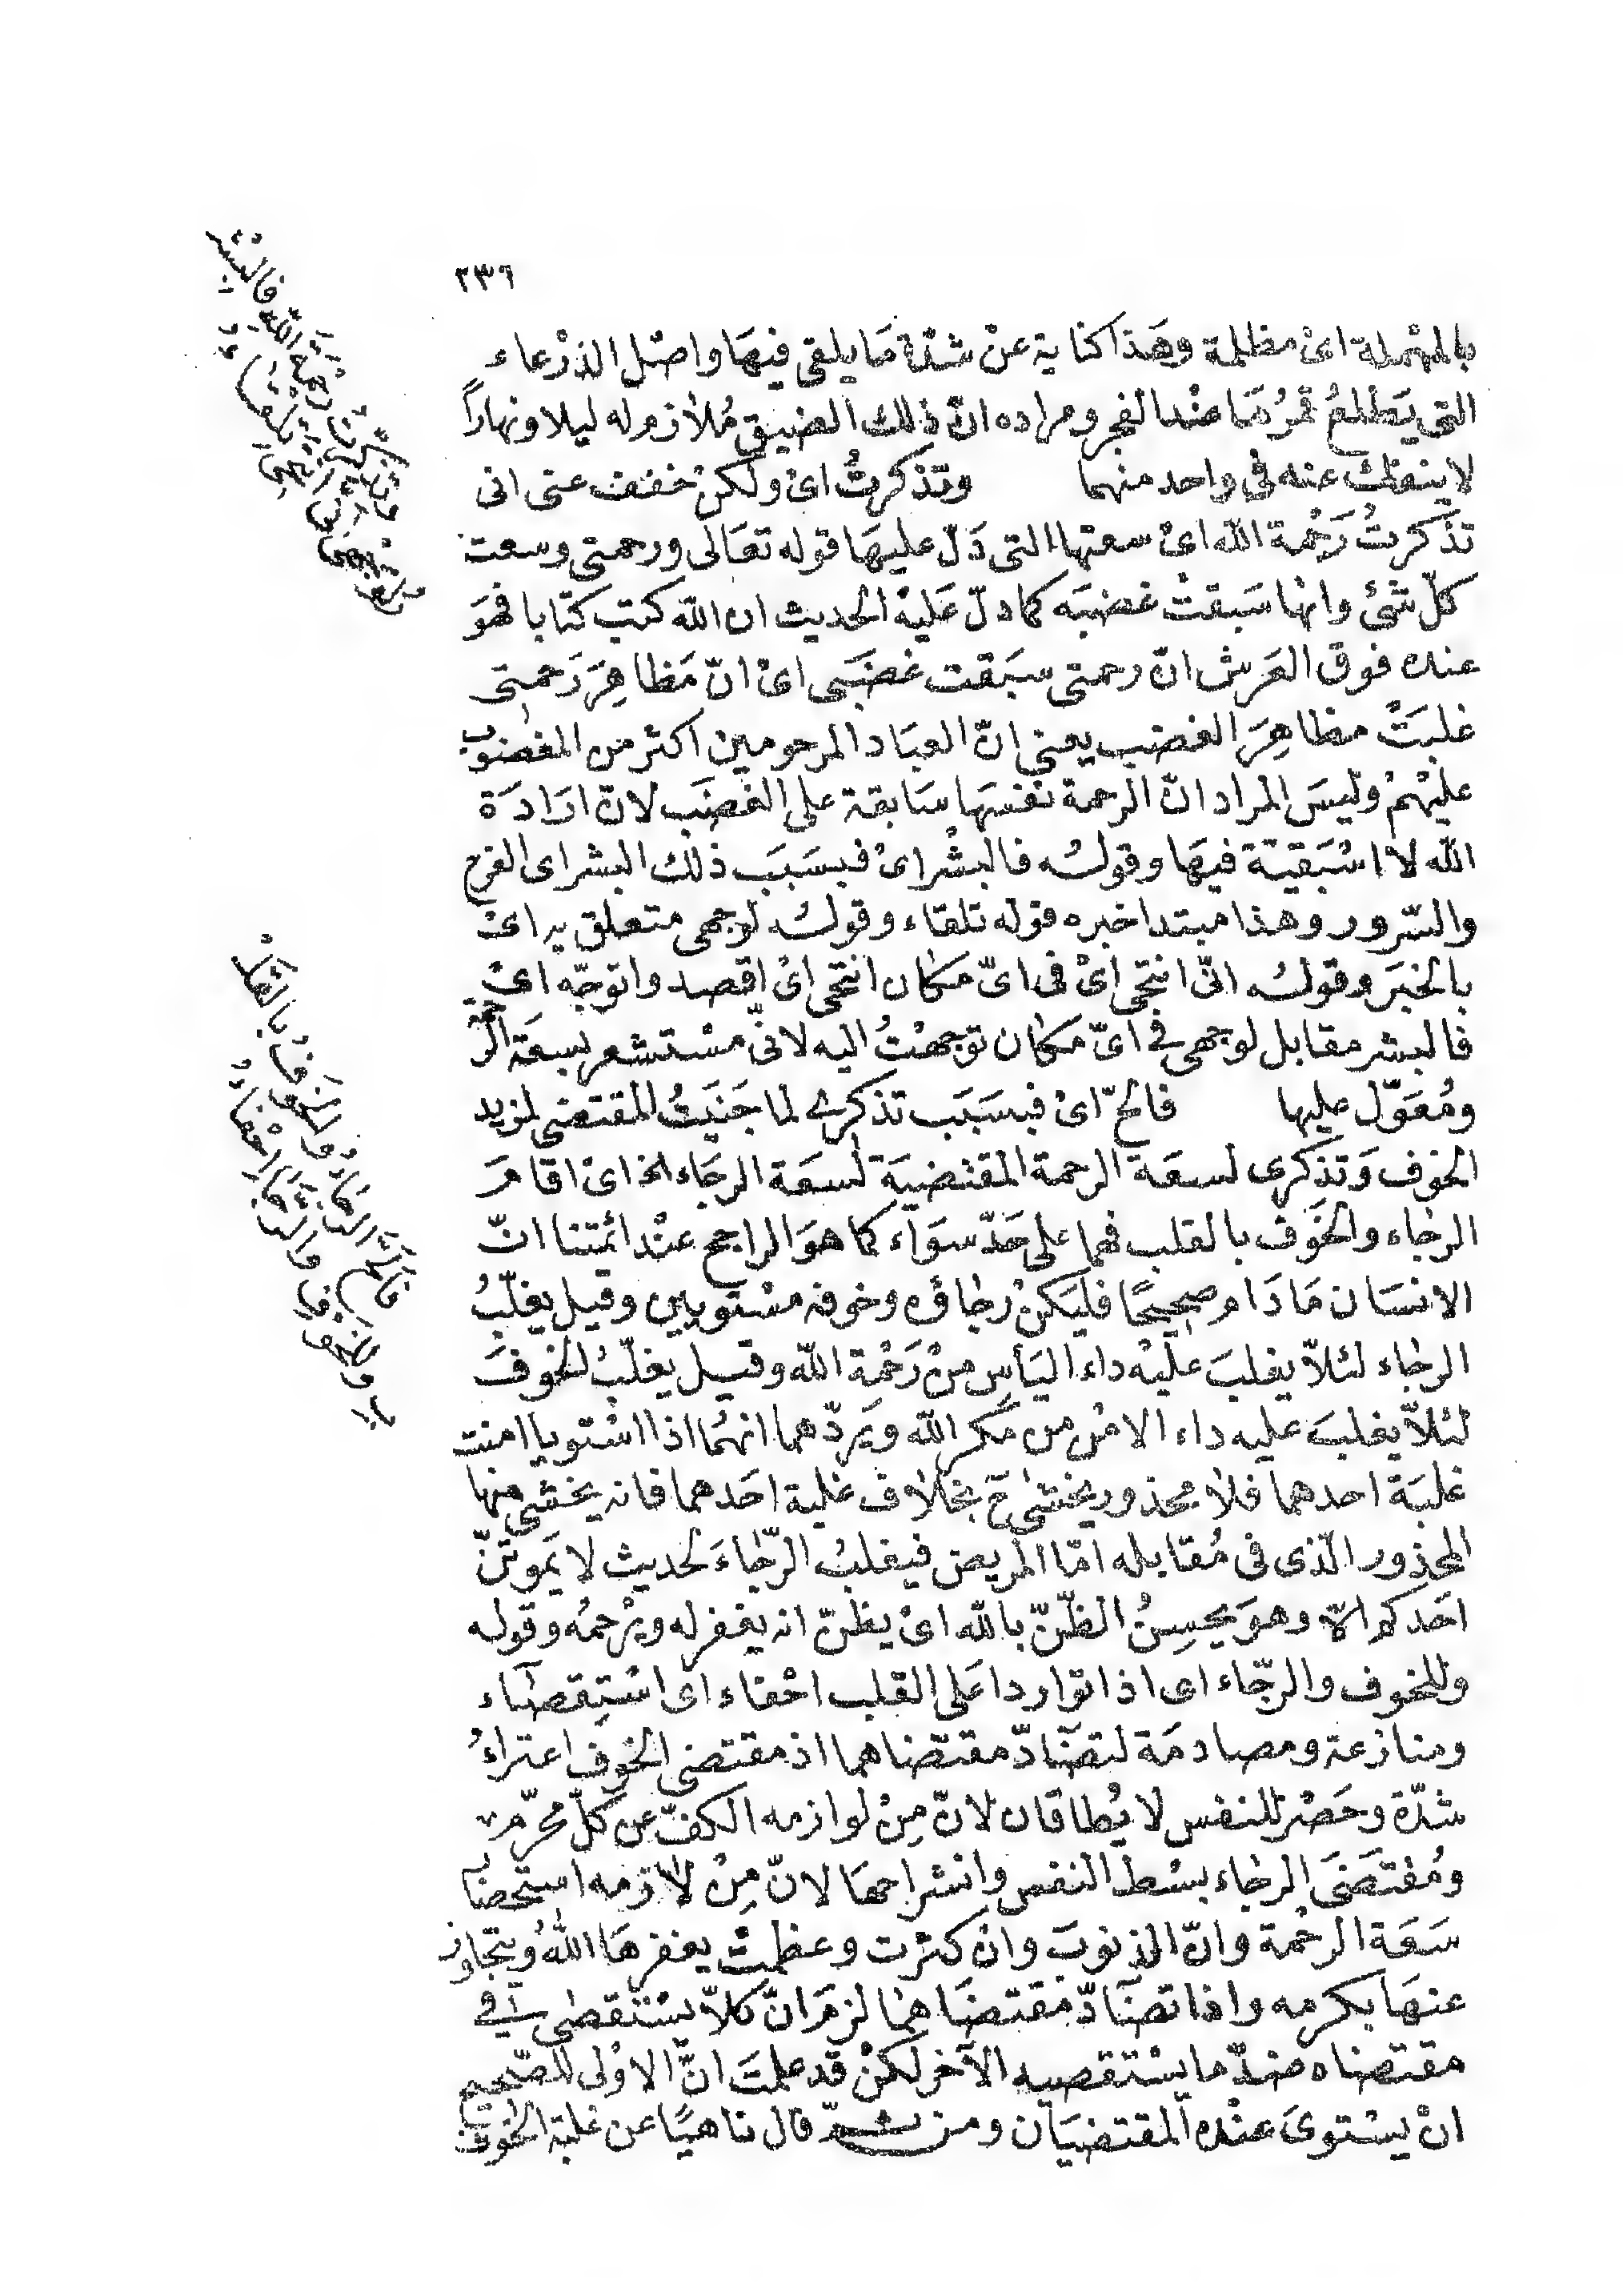 ٢٣٦
بالمهملة اىْ مظلمة وهَذا كناية عنْ شدّة مَا يلقى فيهَا واصْل الذرْعاء
التى يَطلعُ قمرُهَا عنْد الفجر ومراده انّ ذلك الضيق مُلازم له ليلا ونهاراً
لاينفك عنه فى واحد منهما وتذكرتُ اىْ ولكنْ خففف عنى انى
تذَكرتُ رَحْمة الله اىْ سعتها التى دَلّ عليهَا قوله تعَالى ورحمتى وسعت
كلّ شئ وانها سَبقتْ غضبَه كما دلّ عَليهْ الحديث ان الله كتب كتابا فهوَ
عنده فوق العَرش انّ رحمتى سبَقت غضبَى اىْ انّ مَظاهِرَ رَحمتى
غلبَتْ مظاهِرَ الغضب يعنى انّ العبَاد المرحومين اكثر من المغضوب
عليْهمْ وليسَ المراد انّ الرحمة نفسَهَا سَابقة على الغضَب لانّ ارَادَة
الله لا اسْبَقيّة فيهَا وقولُه فالبشْر اىْ فبسَبَب ذلك البشر اى الفرح
والسّرور وهذا مبتدا خبره قوله تلقاء وقولُه لوجهى متعلق به اىْ
بالخبَر وقولُه انّى انتحى اىْ فى اىّ مَكان انتحى اىْ اقصد واتوجّه اىْ
فالبشر مقابل لوجهى فى اىّ مكان توجهْتُ اليه لانّى مسْتشعر بسعَة الرّحمة
ومُعَوّل عليها فالحّ اىْ فبسَبَب تذكرى لما جَنَيتُ المقتضى لمزيد
الخوف وَتذكرى لسعَة الرحمة المقتضيَة لسعَة الرجَاء الخ اىْ اقامَ
الرجاء والخَوفْ بالقلب فهما على حَدّ سوَآء كما هوَ الراجح عنْد ائمتنا انّ
الانسَان مَا دَام صحيحًا فليَكنْ رجاؤه وخوفه مسْتويين وقيل يغلّبُ
الرجاء لئلاّ يغلبَ عليْه داء اليَأسِ منْ رَحْمة الله وقيل يغلّبُ الخوفَ
لئلاّ يغلبَ عليه داء الامْن من مَكر الله ويَردّهما انهمُا اذا اسْتويا امنت
غلبَة احدهما فلا محذور يخشى حَ بخلاف غلبة احَدهما فانه يخشى منها
المحذور الّذى فى مُقابله امّا المريض فيغلبُ الرّجاءَ لحديث لا يَموتنّ
احَدكم الاّ وهوَ يحسِنُ الظّنّ بالله اىْ يظنّ انه يغفر له ويرْحمُه وقوله
وللخوف والرّجاء اى اذا توارَدا عَلى القلب احْفاء اى اسْتِقصَاء
ومنازعة ومصادمَة لتضَادّ مقتضاهما اذ مقتضى الخوف اعتراءُ
شدّة وحَصْر للنفس لا يُطاقان لانّ مِنْ لوازمه الكفّ عن كلّ محرّم
ومُقتضَى الرجاء بسْط النفس وانشراحهَا لانّ مِنْ لازمه استحضار
سَعَة الرحْمة وانّ الذنوبَ وانْ كثرت وعظمتْ يغفرهَا اللهُ ويتجاوز
عنهَا بكرمه واذا تضَادّ مقتضَاهما لزمَ انّ كلاّ يسْتقصى فى
مقتضاه ضدّ ما يسْتقصيه الآخر لكنْ قد علمتَ انّ الاوْلى للصّحيح
انْ يسْتوىَ عنْده المقتضيَان ومن ثمّ قال ناهيًا عن غلبة الخوف
وتذكّرتُ رحْمَةَ اللهِ فالبشْرُ
لوجهى انّى انتحى تلقاءُ
فالحّ الرّجاءُ والخوفُ بالقلبِ
وللخوفِ والرّجا احْفاءُ